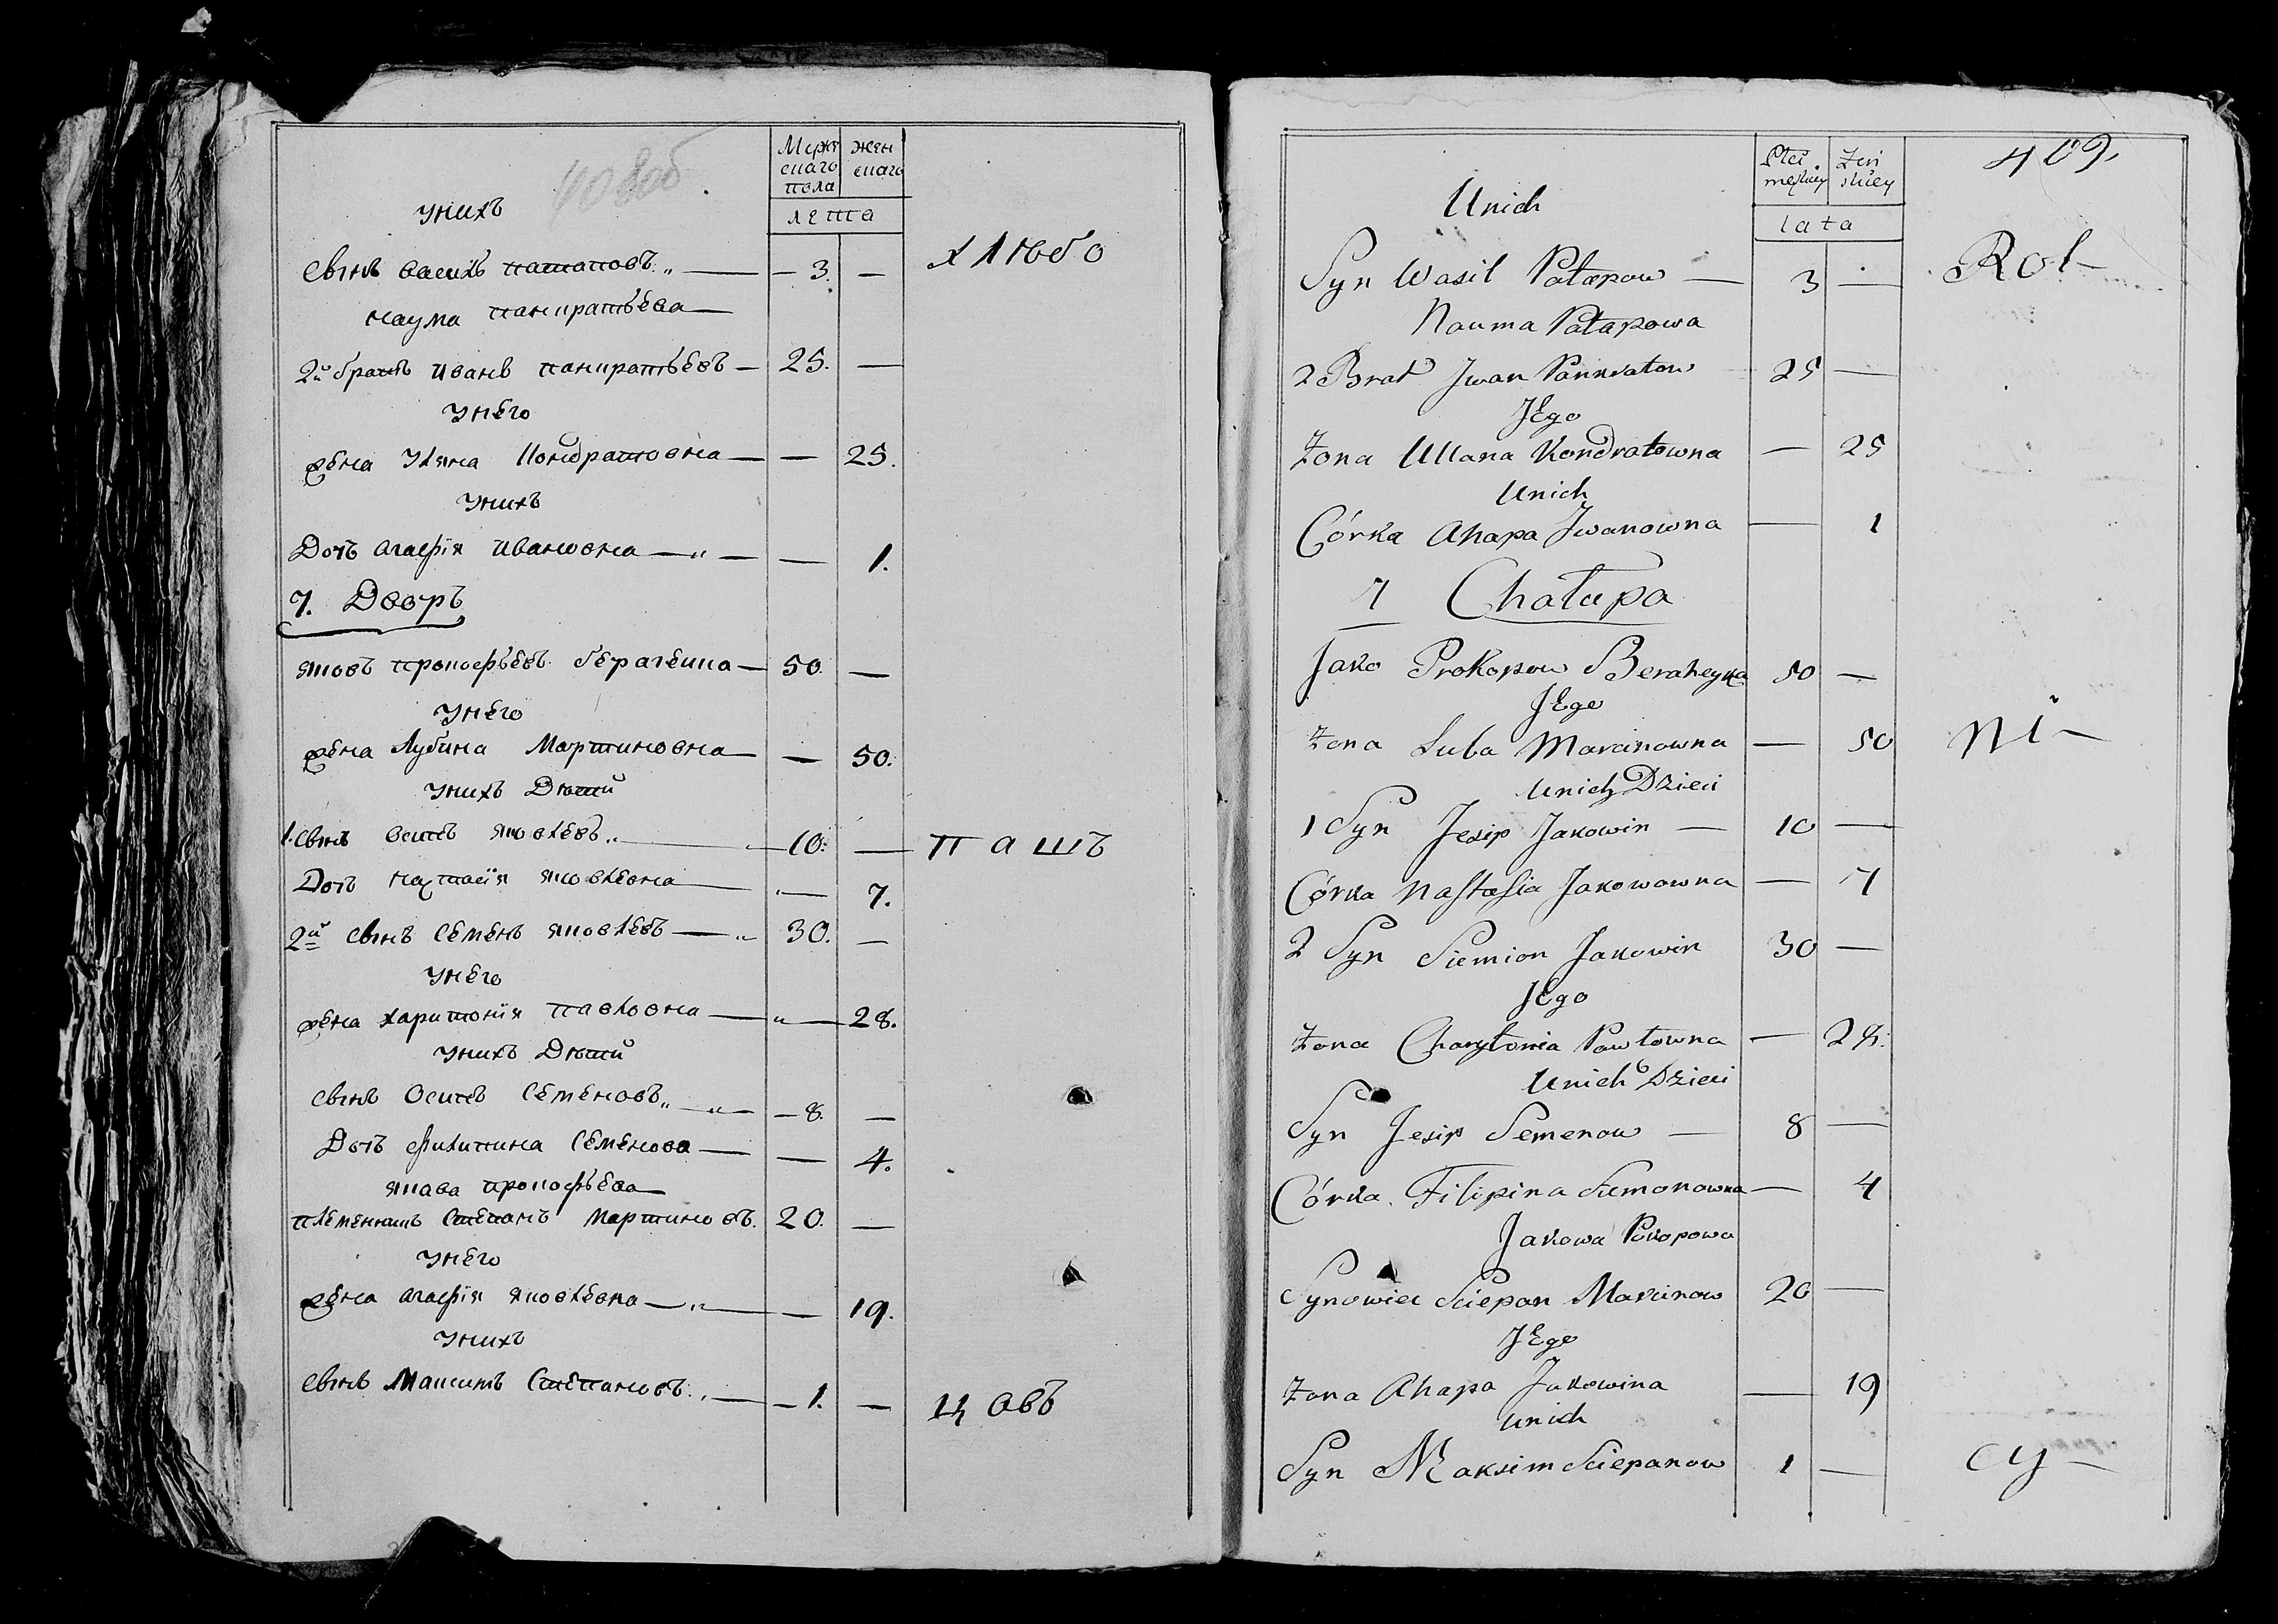 408об
Муже
скаго
пола
жен
скаго
лета
унихъ
Сынъ василъ патаповъ „ — 3. —
наума панкратьева —
2й братъ иванъ панкратьевъ — 25. —
унего
жена уляна кондратовна — — 25.
унихъ
Дочь агафія ивановна — „ — — 1.
7. Дворъ
яковъ прокофьевъ берагейка — 50. —
унего
жена Лубина Мартиновна — — 50.
унихъ Дѣти
1. сынъ осипъ яковлевъ „ — 10. —
Дочь настасія яковлевна — „ — 7.
2й сынъ Семенъ яковлевъ — „ 30. —
унего
жена харитонія павловна — „ — 28.
унихъ Дѣти
сынъ Осипъ Семеновъ „ — „ — 8. —
Дочь филипина Семенова — — 4.
якова прокофьева
племенникъ Степанъ мартиновъ. 20. —
унего
жена агафія яковлевна — „ — — 19.
унихъ
сынъ Максимъ Степановъ „ — 1. —
хлѣбо
пашъ
цовъ
409.
Płci
męskiey
Żeń
skiey
lata
Unich
Syn Wasil Patapow — 3 —
Nauma Patapowa
2 Brat Jwan Pankratow 25 —
JEgo
Żona Ullana Kondratowna — 25
Unich
Córka Ahapa Jwanowna — 1
7 Chałupa
Jako Prokopow Beraheyka 50 —
JEgo
Żona Luba Marcinowna — 50
Unich Dzieci
1 Syn Jesip Jakowin — 10 —
Córka Nastasia Jakowowna — 7
2 Syn Siemion Jakowin 30 —
JEgo
Żona Charytonia Pawłowna — 28.
Unich Dzieci
Syn Jesip Semenow — 8 —
Córka Filipina Siemonowna — 4
Jakowa Pokopowa
Synowiec Sciepan Marcinow 20 —
JEgo
Żona Ahapa Jakowina — 19
unich
Syn Maksim Sciepanow 1 —
Rol-
ni-
cy-